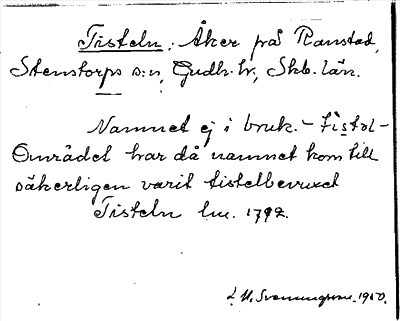 Tisteln. Åker på Ranstad,
Stenstorps s:n, Gudh. hr, Skb. län.
Namnet ej i bruk. – tistəl –
Området har då namnet kom till
säkerligen varit tistelbevuxet
Tisteln lm. 1792.
1950.